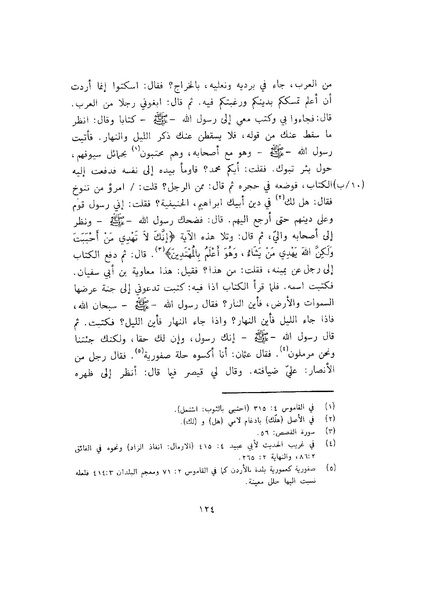 من العرب، جاء في برديه ونعليه، بالخراج؟ فقال: اسكتوا إنما أردت
أن أعلم تمسككم بدينكم ورغبتكم فيه. ثم قال: ابغوني رجلا من العرب.
قال: فجاءوا بي وكتب معي إلى رسول الله - ﷺ - كتابا وقال: انظر
ما سقط عنك من قوله، فلا يسقطن عنك ذكر الليل والنهار. فأتيت
رسول الله - ﷺ - وهو مع أصحابه، وهم محتبون(١) بحمائل سيوفهم،
حول بئر تبوك. فقلت: أيكم محمد؟ فأومأ بيده إلى نفسه فدفعت إليه
(١٠/ب) الكتاب، فوضعه في حجره ثم قال: ممن الرجل؟ قلت: / امرؤ من تنوخ
فقال: هل لك(٢) في دين أبيك ابراهيم، الحنيفية؟ فقلت: إني رسول قوم
وعلى دينهم حتى أرجع اليهم. قال: فضحك رسول الله - ﷺ - ونظر
إلى أصحابه واليّ، ثم قال: وتلا هذه الآية ﴿إِنَّكَ لاَ تَهْدِي مَنْ أَحْبَبْتَ
وَلَكِنَّ اللهَ يَهْدِي مَنْ يَشَاءُ، وَهُوَ أَعْلَمُ بِالْمُهْتَدِينَ﴾(٣). قال: ثم دفع الكتاب
إلى رجل عن يمينه، فقلت: من هذا؟ فقيل: هذا معاوية بن أبي سفيان.
فكتبت اسمه. فلما قرأ الكتاب اذا فيه: كتبت تدعوني إلى جنة عرضها
السموات والأرض، فأين النار؟ فقال رسول الله - ﷺ - سبحان الله،
فاذا جاء الليل فأين النهار؟ واذا جاء النهار فأين الليل؟ فكتبتها. ثم
قال رسول الله - ﷺ - إنك رسول، وإن لك حقا، ولكنك جئتنا
ونحن مرملون(٤). فقال عثمان: أنا أكسوه حلة صفورية(٥). فقال رجل من
الأنصار: عليّ ضيافته. وقال لي قيصر فيما قال: أنظر إلى ظهره
(١) في القاموس ٤: ٣١٥ (احتبى بالثوب: اشتمل).
(٢) في الأصل (هلّك) بادغام لامي (هل) و (لك).
(٣) سورة القصص: ٥٦.
(٤) في غريب الحديث لأبي عبيد ٤: ٤١٥ (الارمال: انفاذ الزاد) ونحوه في الفائق
٨٦:٢، والنهاية ٢: ٢٦٥.
(٥) صفورية كعمورية بلدة بالأردن كما في القاموس ٢: ٧١ ومعجم البلدان ٤١٤:٣ فلعله
نسبت اليها حلل معينة.
١٢٤